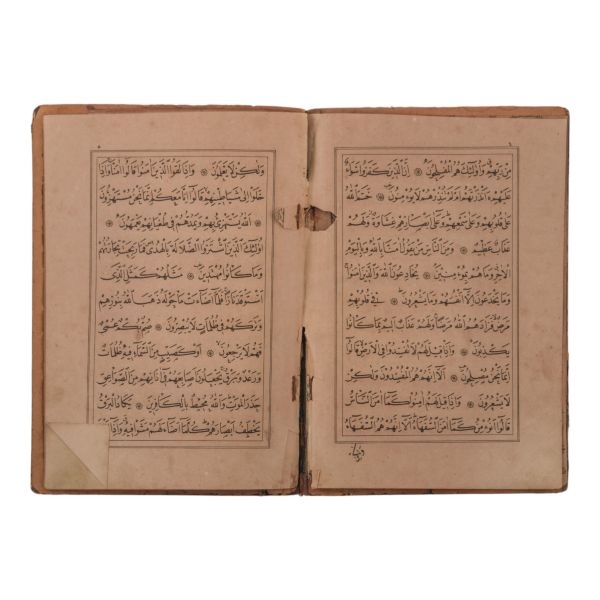 مِنْ رَبِّهِمْ وَأُولٰئِكَ هُمُ الْمُفْلِحُونَ ۞ اِنَّ الَّذِينَ كَفَرُوا سَوَاءٌ
عَلَيْهِمْ ءَاَنْذَرْتَهُمْ اَمْ لَمْ تُنْذِرْهُمْ لَا يُؤْمِنُونَ ۞ خَتَمَ اللّٰهُ
عَلٰى قُلُوبِهِمْ وَعَلٰى سَمْعِهِمْ وَعَلٰى اَبْصَارِهِمْ غِشَاوَةٌ وَلَهُمْ
عَذَابٌ عَظِيمٌ ۞ وَمِنَ النَّاسِ مَنْ يَقُولُ اٰمَنَّا بِاللّٰهِ وَبِالْيَوْمِ
الْاٰخِرِ وَمَا هُمْ بِمُؤْمِنِينَ ۞ يُخَادِعُونَ اللّٰهَ وَالَّذِينَ اٰمَنُوا
وَمَا يَخْدَعُونَ اِلَّا اَنْفُسَهُمْ وَمَا يَشْعُرُونَ ۞ فِي قُلُوبِهِمْ
مَرَضٌ فَزَادَهُمُ اللّٰهُ مَرَضًا وَلَهُمْ عَذَابٌ اَلِيمٌ بِمَا كَانُوا
يَكْذِبُونَ ۞ وَاِذَا قِيلَ لَهُمْ لَا تُفْسِدُوا فِي الْاَرْضِ قَالُوا
اِنَّمَا نَحْنُ مُصْلِحُونَ ۞ اَلَا اِنَّهُمْ هُمُ الْمُفْسِدُونَ وَلٰكِنْ
لَا يَشْعُرُونَ ۞ وَاِذَا قِيلَ لَهُمْ اٰمِنُوا كَمَا اٰمَنَ النَّاسُ
قَالُوا اَنُؤْمِنُ كَمَا اٰمَنَ السُّفَهَاءُ اَلَا اِنَّهُمْ هُمُ السُّفَهَاءُ
وَلٰكِنْ لَا يَعْلَمُونَ ۞ وَاِذَا لَقُوا الَّذِينَ اٰمَنُوا قَالُوا اٰمَنَّا وَاِذَا
خَلَوْا اِلٰى شَيَاطِينِهِمْ قَالُوا اِنَّا مَعَكُمْ اِنَّمَا نَحْنُ مُسْتَهْزِؤُنَ
اَللّٰهُ يَسْتَهْزِئُ بِهِمْ وَيَمُدُّهُمْ فِي طُغْيَانِهِمْ يَعْمَهُونَ ۞
اُولٰئِكَ الَّذِينَ اشْتَرَوُا الضَّلَالَةَ بِالْهُدٰى فَمَا رَبِحَتْ تِجَارَتُهُمْ
وَمَا كَانُوا مُهْتَدِينَ ۞ مَثَلُهُمْ كَمَثَلِ الَّذِي
اسْتَوْقَدَ نَارًا فَلَمَّا اَضَاءَتْ مَا حَوْلَهُ ذَهَبَ اللّٰهُ بِنُورِهِمْ
وَتَرَكَهُمْ فِي ظُلُمَاتٍ لَا يُبْصِرُونَ ۞ صُمٌّ بُكْمٌ عُمْيٌ
فَهُمْ لَا يَرْجِعُونَ ۞ اَوْ كَصَيِّبٍ مِنَ السَّمَاءِ فِيهِ ظُلُمَاتٌ
وَرَعْدٌ وَبَرْقٌ يَجْعَلُونَ اَصَابِعَهُمْ فِي اٰذَانِهِمْ مِنَ الصَّوَاعِقِ
حَذَرَ الْمَوْتِ وَاللّٰهُ مُحِيطٌ بِالْكَافِرِينَ ۞ يَكَادُ الْبَرْقُ
يَخْطَفُ اَبْصَارَهُمْ كُلَّمَا اَضَاءَ لَهُمْ مَشَوْا فِيهِ وَاِذَا